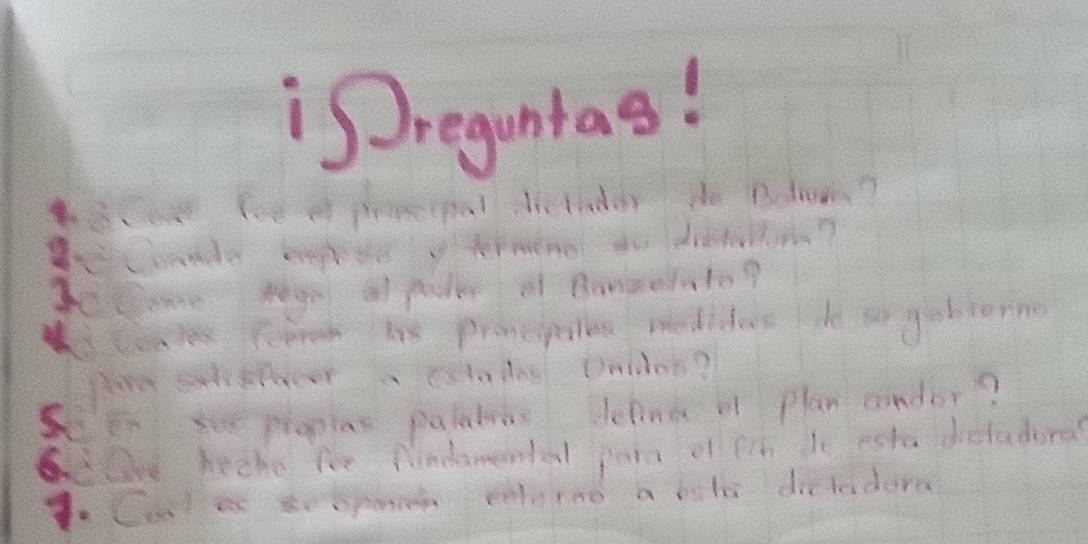 ¡Preguntas!
1. ¿Cual fue el principal dictador de Bolivia?
2. ¿Cuando empezo y termino su dictadura?
3. ¿Como llego al poder el Banzelato?
4. ¿Cuales fueron las principales medidas de su gobierno
para satisfacer a estados Unidos?
5. ¿en sus propias palabras defina el plan condor?
6. ¿Que hecho fue fundamental para el fin de esta dictadura?
7. Cual es su opinion entorno a esta dictadora